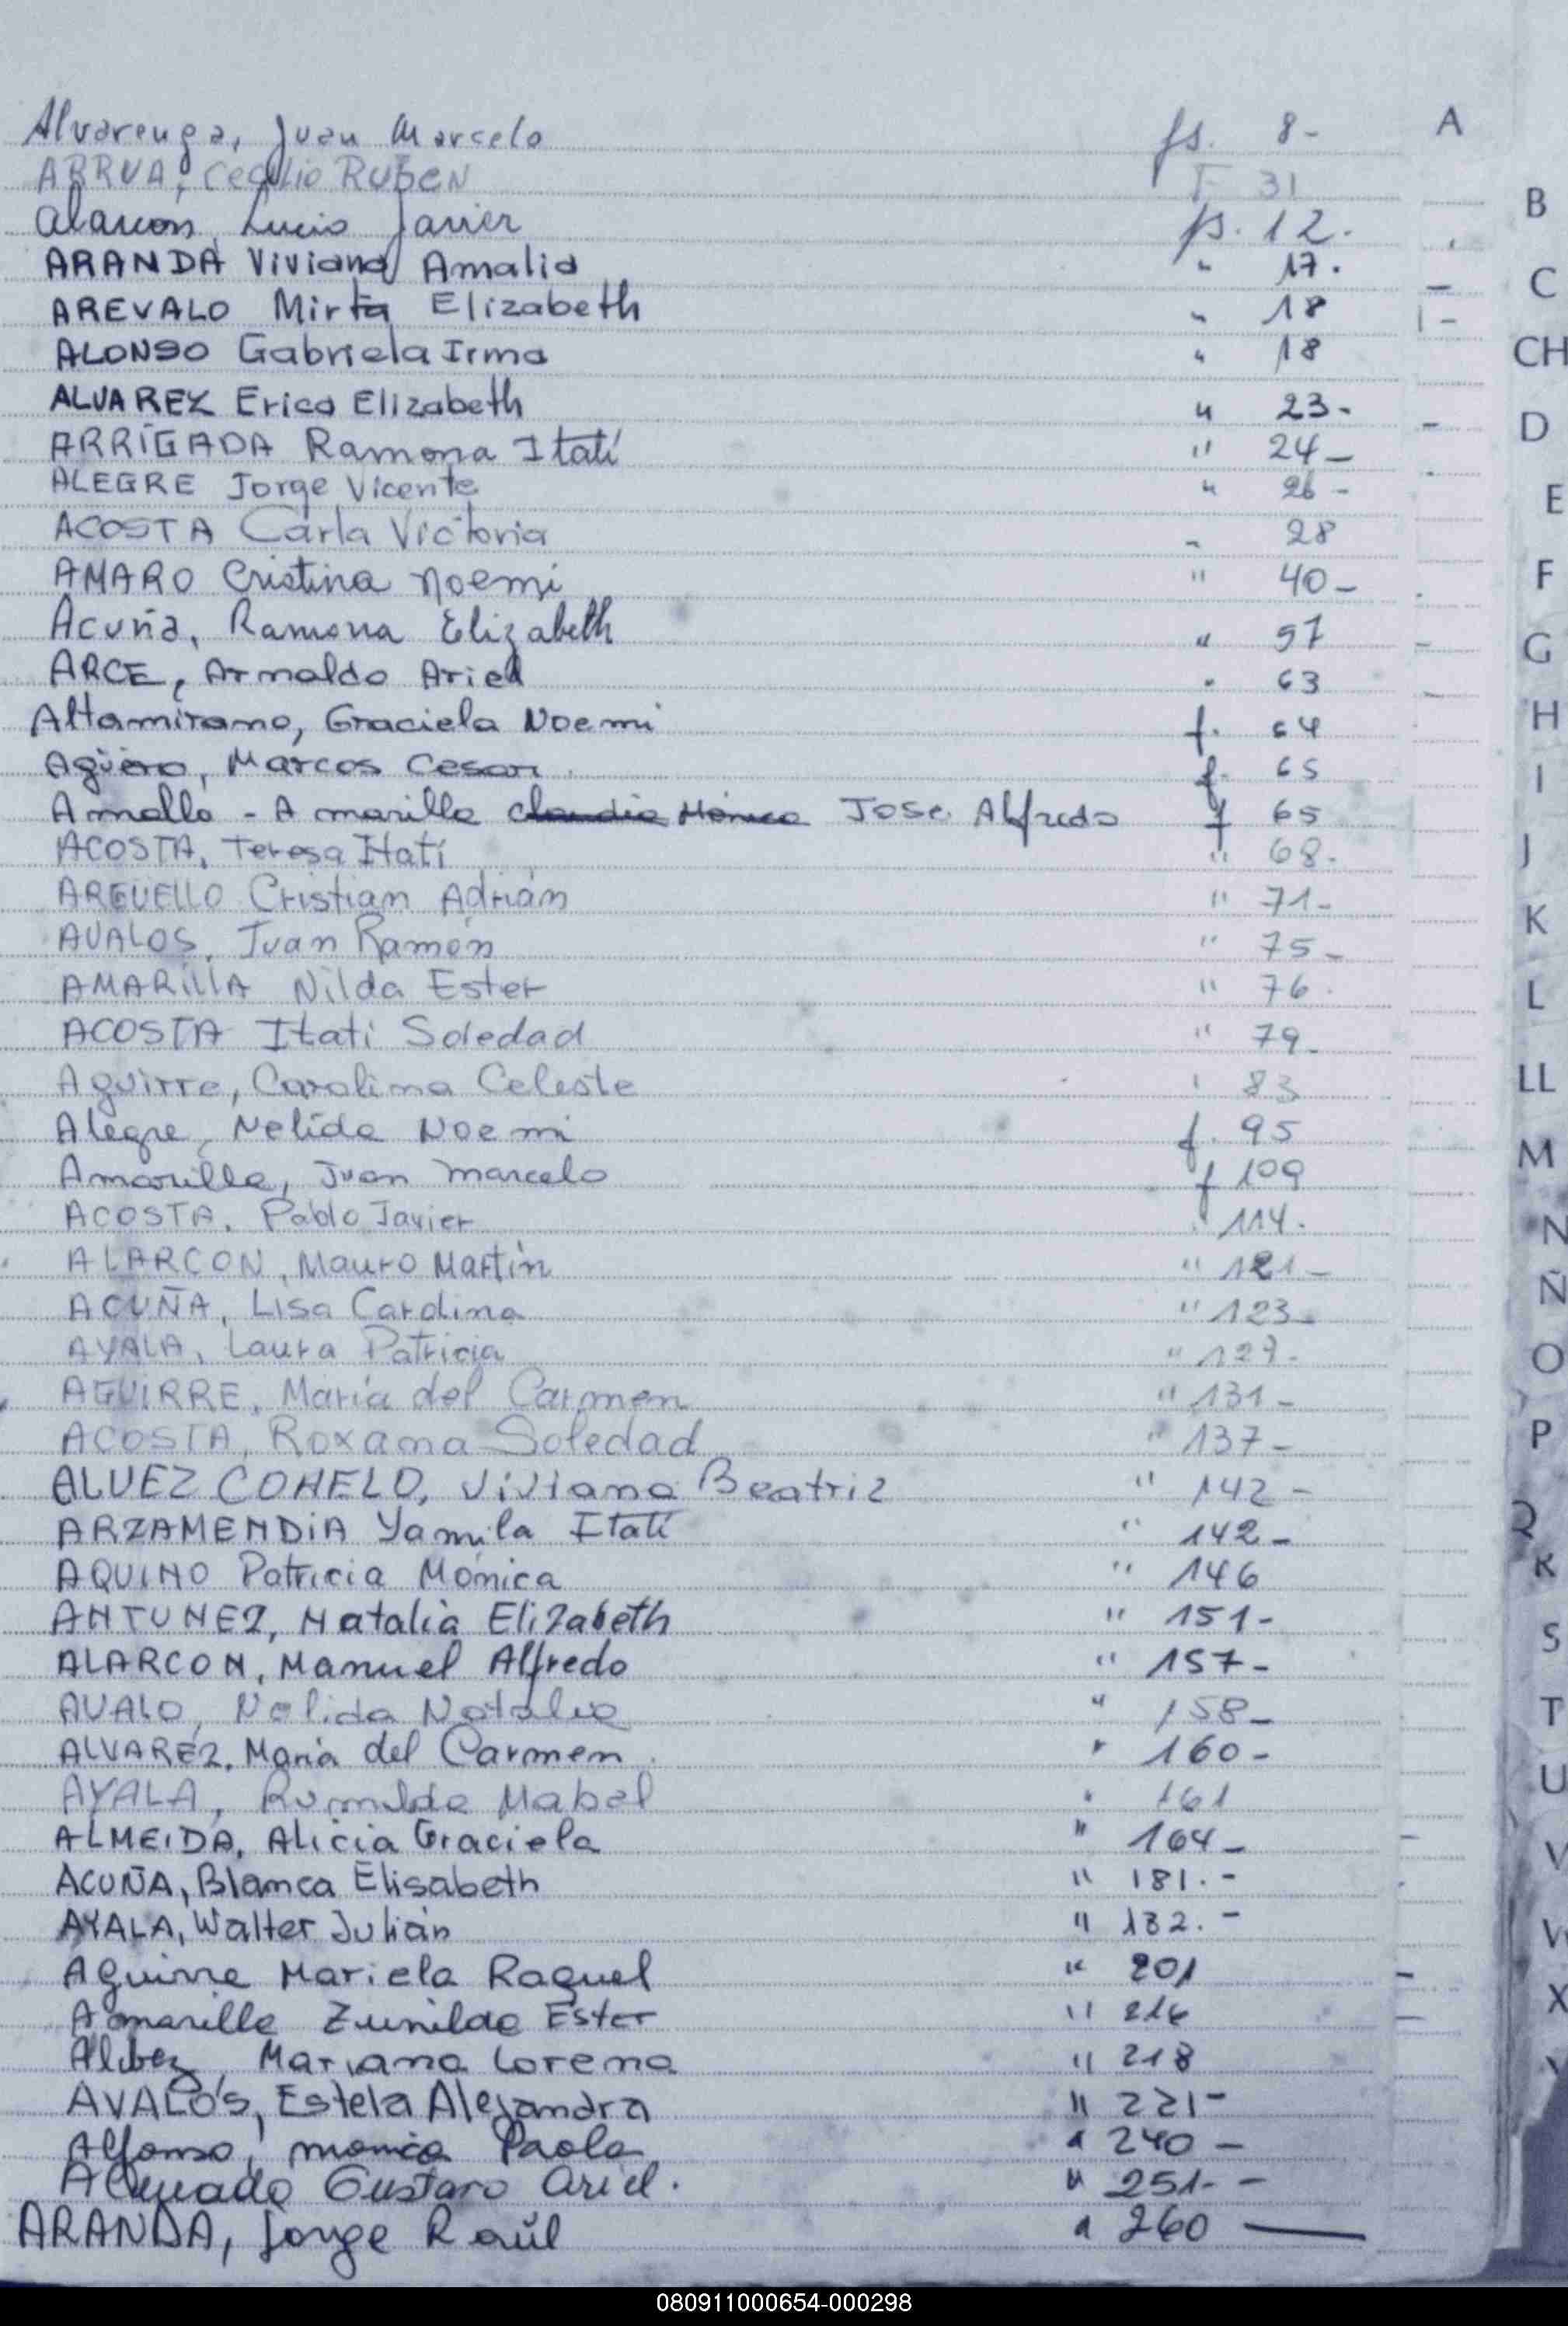 Alvarenga, Juan Marcelo fs. 8-
ARRUA, Cecilio RUBEN F 31
Alarcon, Lucio Javier fs. 12.
ARANDA Viviana Amalia " 17.
AREVALO Mirta Elizabeth " 18
ALONSO Gabriela Irma " 18
ALVAREZ Erica Elizabeth " 23-
ARRIGADA Ramona Itatí " 24-
ALEGRE Jorge Vicente " 26-
ACOSTA Carla Victoria " 28
AMARO Cristina Noemi " 40-
Acuña, Ramona Elizabeth " 57
ARCE, Arnaldo Ariel " 63
Altamirano, Graciela Noemi f. 64
Agüero, Marcos Cesar f. 65
- Amarilla Claudia Mónica Jose Alfredo f 65
ACOSTA, Teresa Itatí " 68-
ARGUELLO Cristian Adrián " 71-
AVALOS, Juan Ramón " 75-
AMARILLA Nilda Ester " 76.
ACOSTA Itati Soledad " 79-
Aguirre, Carolina Celeste " 83
Alegre, Nelida Noemi f. 95
Amarilla, Juan Marcelo f 109
ACOSTA, Pablo Javier " 114.
ALARCON, Mauro Martín " 121-
ACUÑA, Lisa Carolina " 123-
AYALA, Laura Patricia " 127-
AGUIRRE, María del Carmen " 131-
ACOSTA, Roxana Soledad " 137-
ALVEZ COHELO, Viviana Beatriz " 142-
ARZAMENDIA Yamila Itatí " 142-
AQUINO Patricia Mónica " 146
ANTUNEZ, Natalia Elizabeth " 151-
ALARCON, Manuel Alfredo " 157-
AVALO, Nelida Natalia " 158-
ALVAREZ, María del Carmen " 160-
AYALA, Romilda Mabel " 161
ALMEIDA, Alicia Graciela " 164-
ACUÑA, Blanca Elisabeth " 181.-
AYALA, Walter Julián " 182.-
Aguirre Mariela Raquel " 201
Amarilla Zunilda Ester " 216
Mariana Lorena " 218
AVALOS, Estela Alejandra " 221-
Alfonso, monica Paola " 240-
Gustavo Ariel. " 251--
ARANDA, Jorge Raúl " 260 —
A
B
C
CH
D
E
F
G
H
I
J
K
L
LL
M
N
Ñ
O
P
Q
R
S
T
U
V
X
080911000654-000298